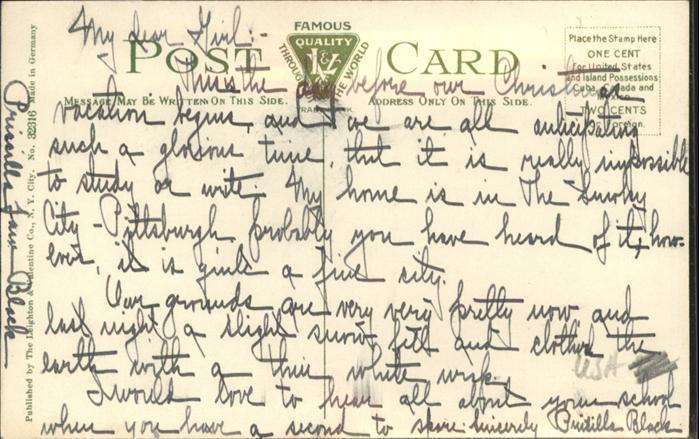 My dear Girl:-
FAMOUS
QUALITY
THROUGHOUT THE WORLD
POST CARD
MESSAGE MAY BE WRITTEN ON THIS SIDE.
ADDRESS ONLY ON THIS SIDE.
Place the Stamp Here
ONE CENT
For United States
and Island Possessions
Cuba, Canada and
TWO CENTS
This the day before our Christmas
vacation begins, and we are all anticipating
such a glorious time, that it is really impossible
to study or write. My home is in The Smoky
City - Pittsburgh probably you have heard of it, how-
ever, it is quite a fine city.
Our grounds are very very pretty now and
last night a slight snow fell and clothed the
earth with a thin white wrap.
USA
I would love to hear all about your school
when you have a second to spare. Sincerely Pritilla Black
Priscilla Jane Black
Published by The Leighton & Valentine Co., N. Y. City. No. 32316 Made in Germany